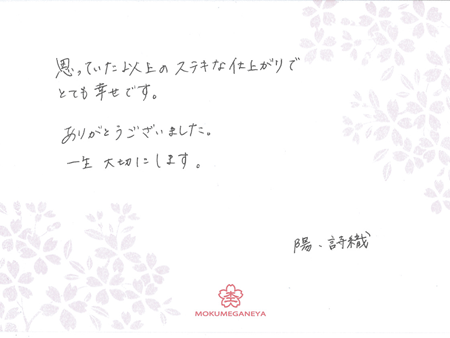 思っていた以上のステキな仕上がりで
とても幸せです。
ありがとうございました。
一生大切にします。
陽、詩織
MOKUMEGANEYA